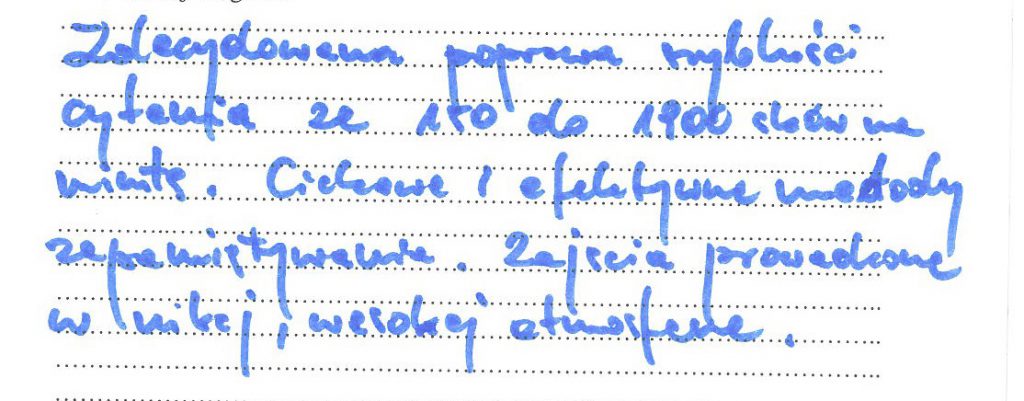 Zdecydowana poprawa szybkości
czytania ze 150 do 1900 słów na
minutę. Ciekawe i efektywne metody
zapamiętywania. Zajęcia prowadzone
w miłej, wesołej atmosferze.